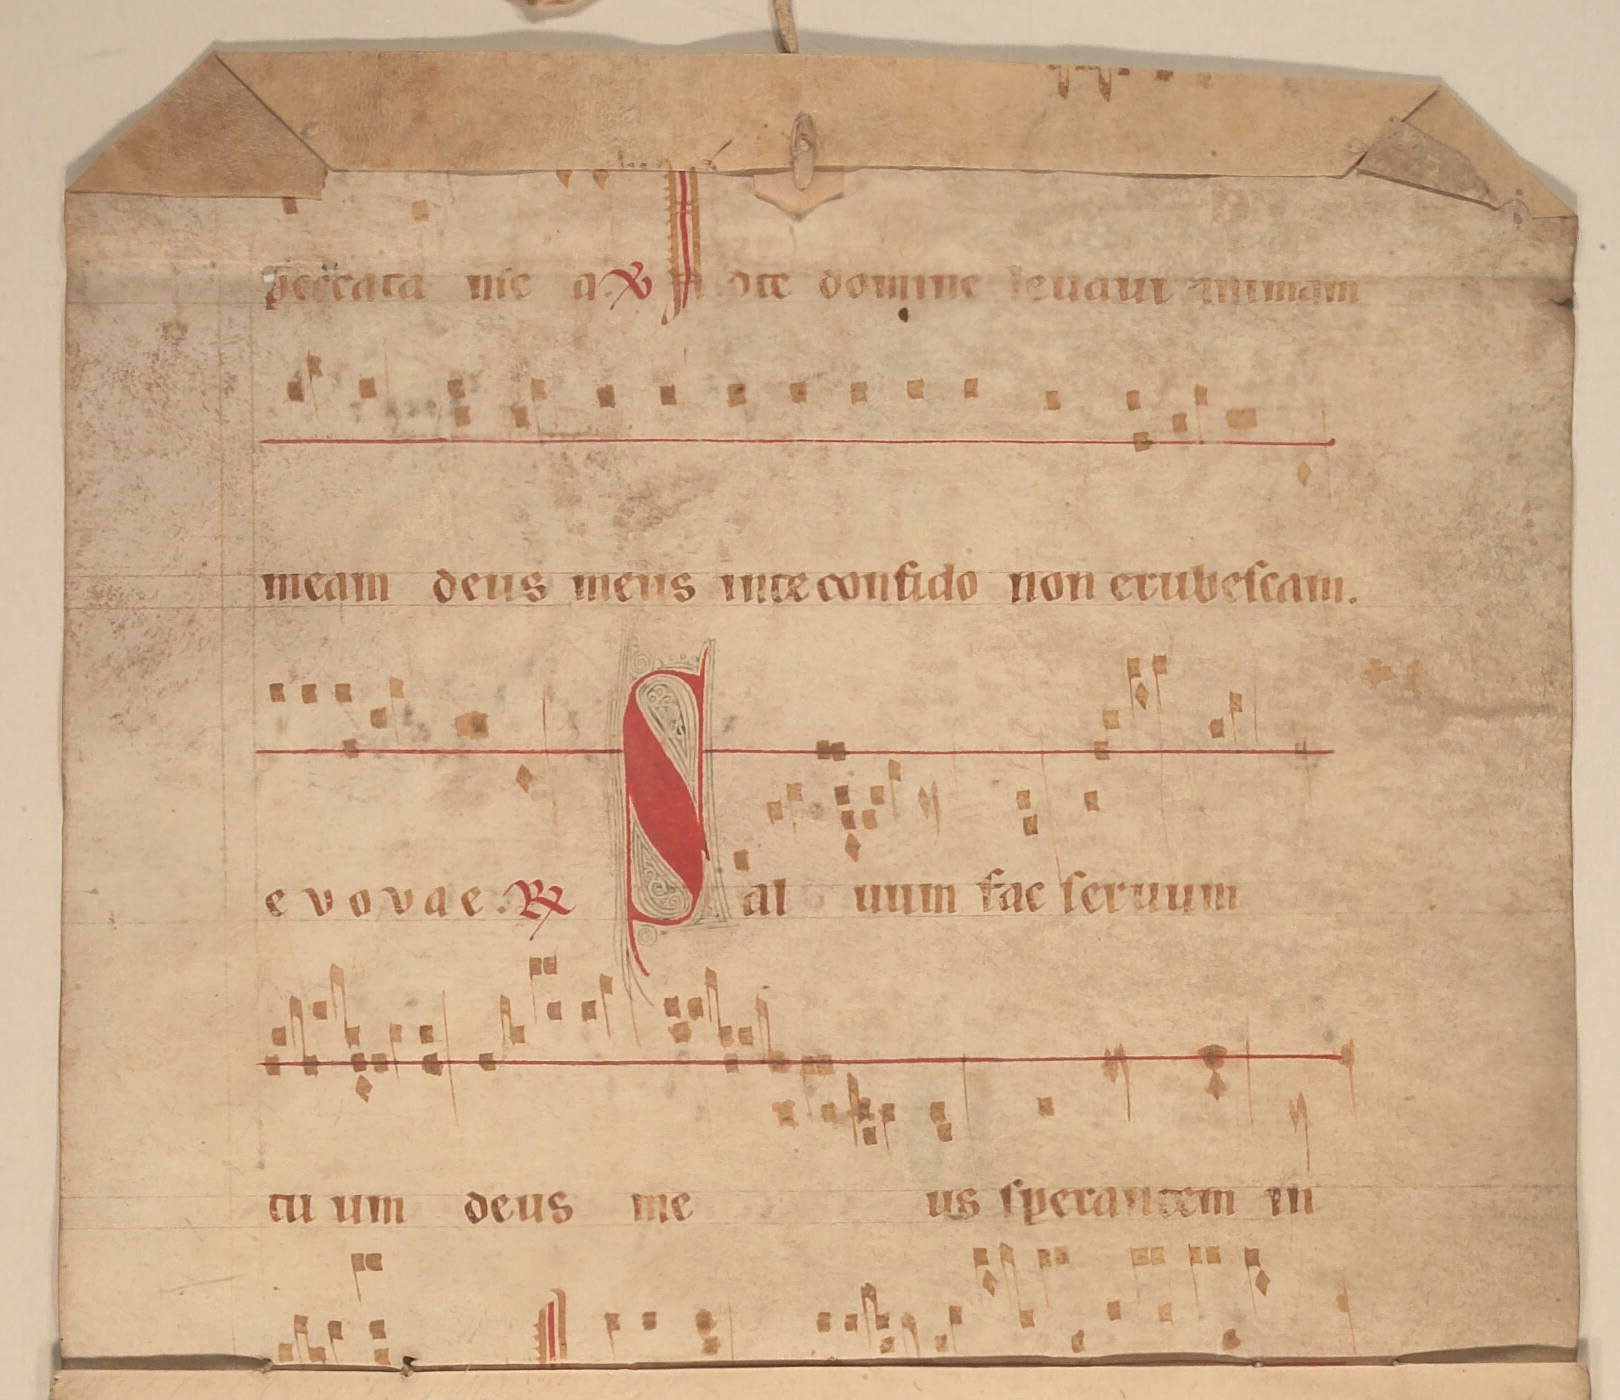 peccata me a. ℟ Ad te domine leuaui animam
meam deus meus in te confido non erubescam.
e v o v a e . ℟ Sal uum fac seruum
tu um deus me us sperantem in